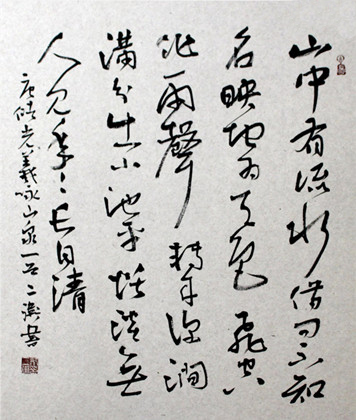 山中有流水借问不知
名映地为天色飞空
作雨聲轉来深澗
满分出小池平恬淡无
人见年〻长自清
唐储光羲咏山泉一首二